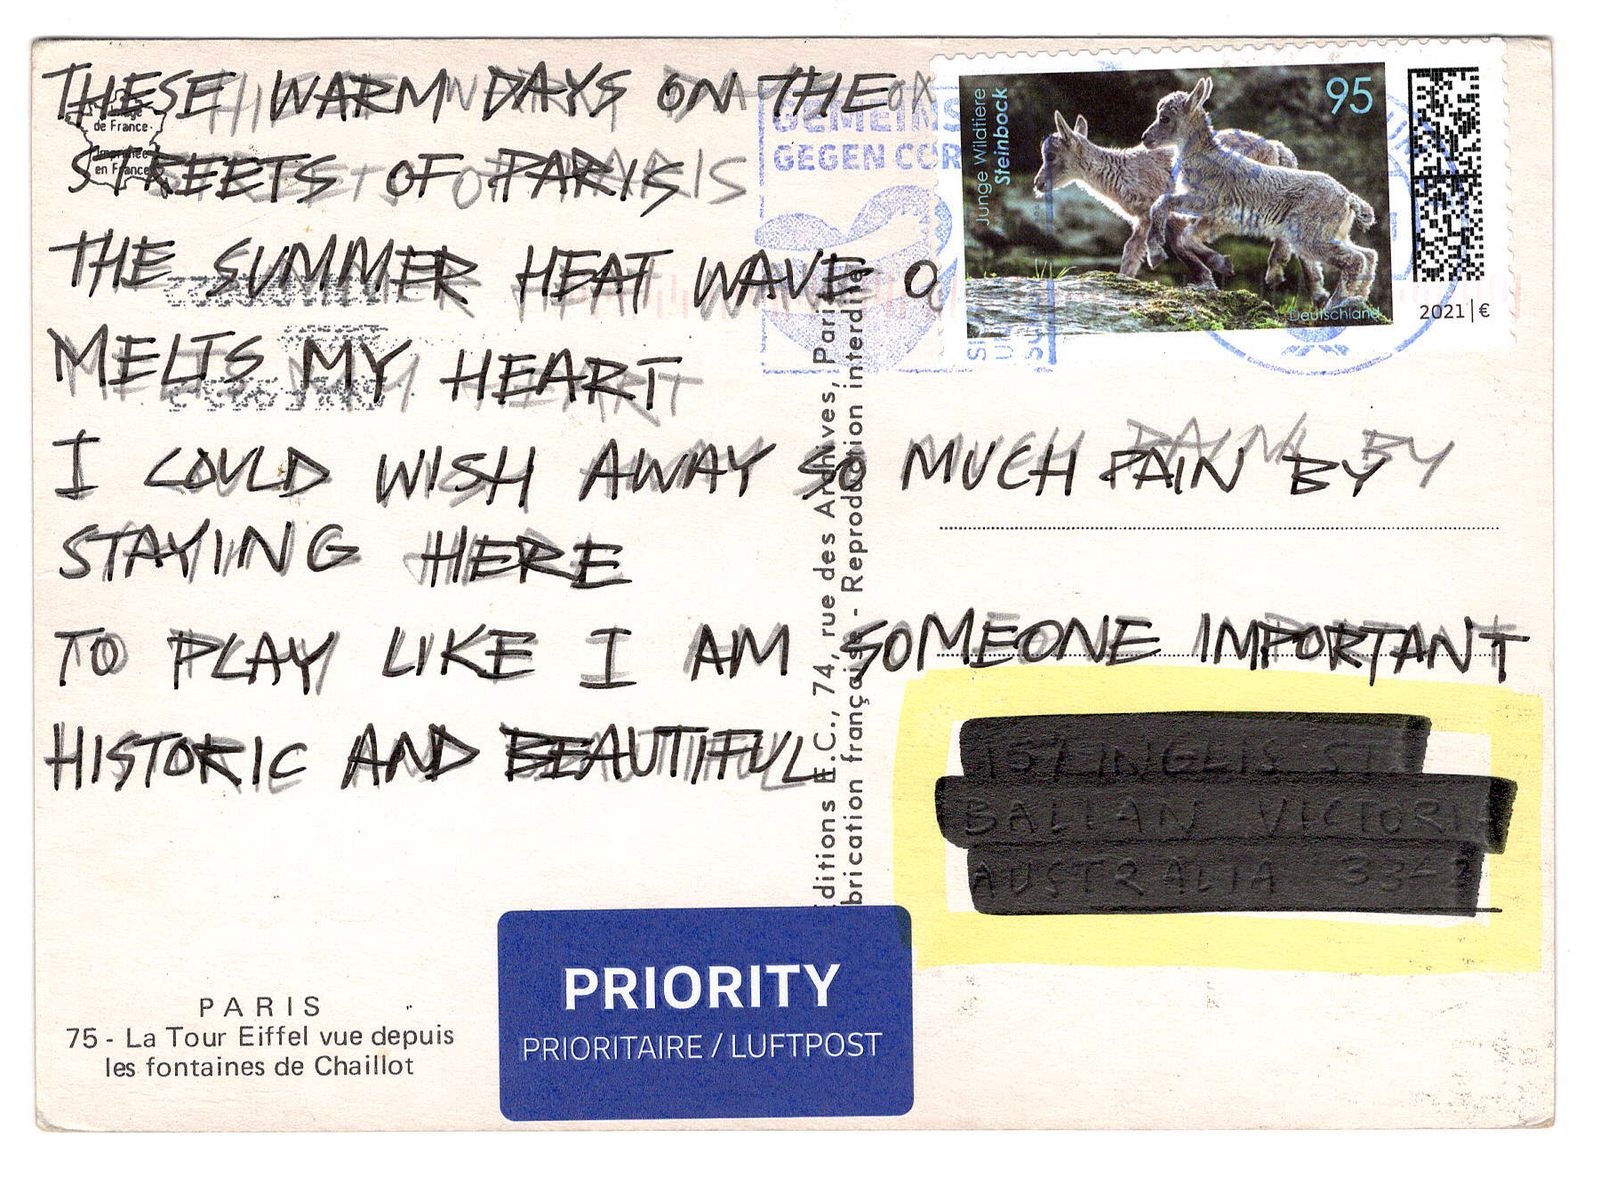 THESE WARM DAYS ON THE
STREETS OF PARIS
THE SUMMER HEAT WAVE
MELTS MY HEART
I COULD WISH AWAY SO MUCH PAIN BY
STAYING HERE
TO PLAY LIKE I AM SOMEONE IMPORTANT
HISTORIC AND BEAUTIFUL
de France
Imprimée
en France
GEMEINS
GEGEN COR
Junge Wildtiere
Steinbock
95
Deutschland
2021 | €
ditions E.C., 74, rue des Archives, Paris
brication française - Reproduction interdite
PARIS
75 - La Tour Eiffel vue depuis
les fontaines de Chaillot
PRIORITY
PRIORITAIRE / LUFTPOST